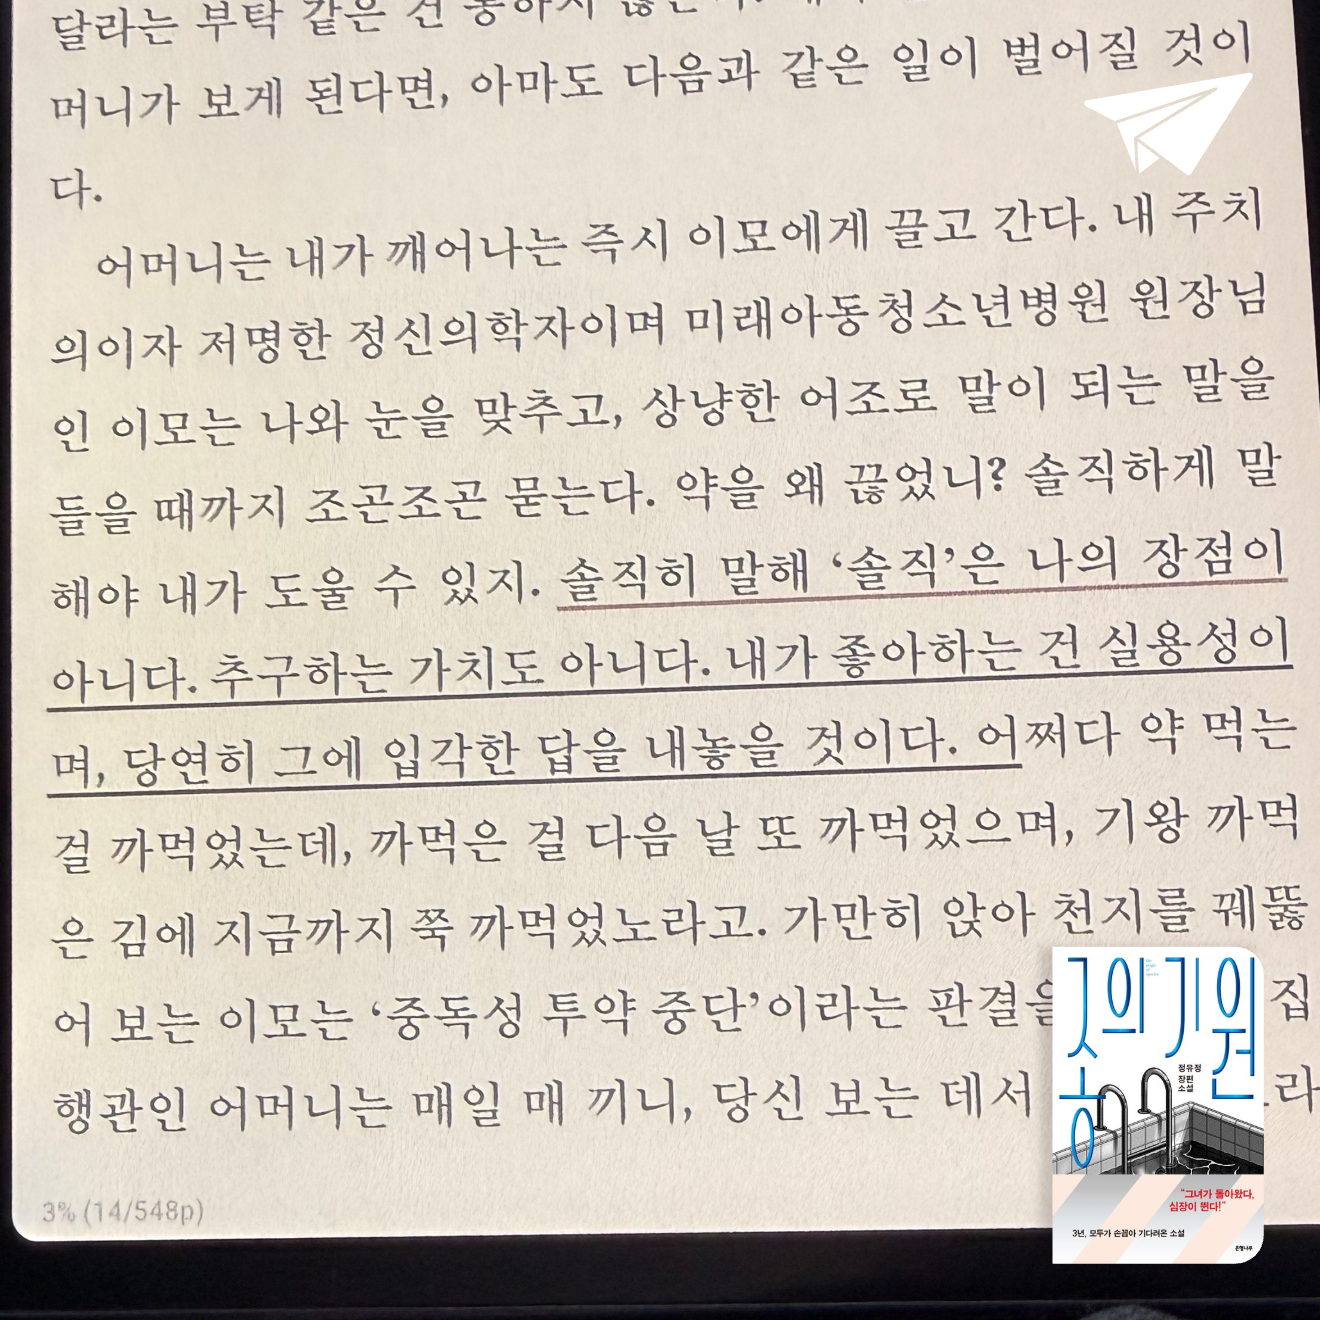 달라는 부탁 같은 건 통하지 않는다.
머니가 보게 된다면, 아마도 다음과 같은 일이 벌어질 것이
다.
어머니는 내가 깨어나는 즉시 이모에게 끌고 간다. 내 주치
의이자 저명한 정신의학자이며 미래아동청소년병원 원장님
인 이모는 나와 눈을 맞추고, 상냥한 어조로 말이 되는 말을
들을 때까지 조곤조곤 묻는다. 약을 왜 끊었니? 솔직하게 말
해야 내가 도울 수 있지. 솔직히 말해 ‘솔직’은 나의 장점이
아니다. 추구하는 가치도 아니다. 내가 좋아하는 건 실용성이
며, 당연히 그에 입각한 답을 내놓을 것이다. 어쩌다 약 먹는
걸 까먹었는데, 까먹은 걸 다음 날 또 까먹었으며, 기왕 까먹
은 김에 지금까지 쭉 까먹었노라고. 가만히 앉아 천지를 꿰뚫
어 보는 이모는 ‘중독성 투약 중단’이라는 판결을 집
행관인 어머니는 매일 매 끼니, 당신 보는 데서 라
3% (14/548p)
종의 기원
정유정
장편
소설
"그녀가 돌아왔다,
심장이 뛴다!"
3년, 모두가 손꼽아 기다려온 소설
은행나무